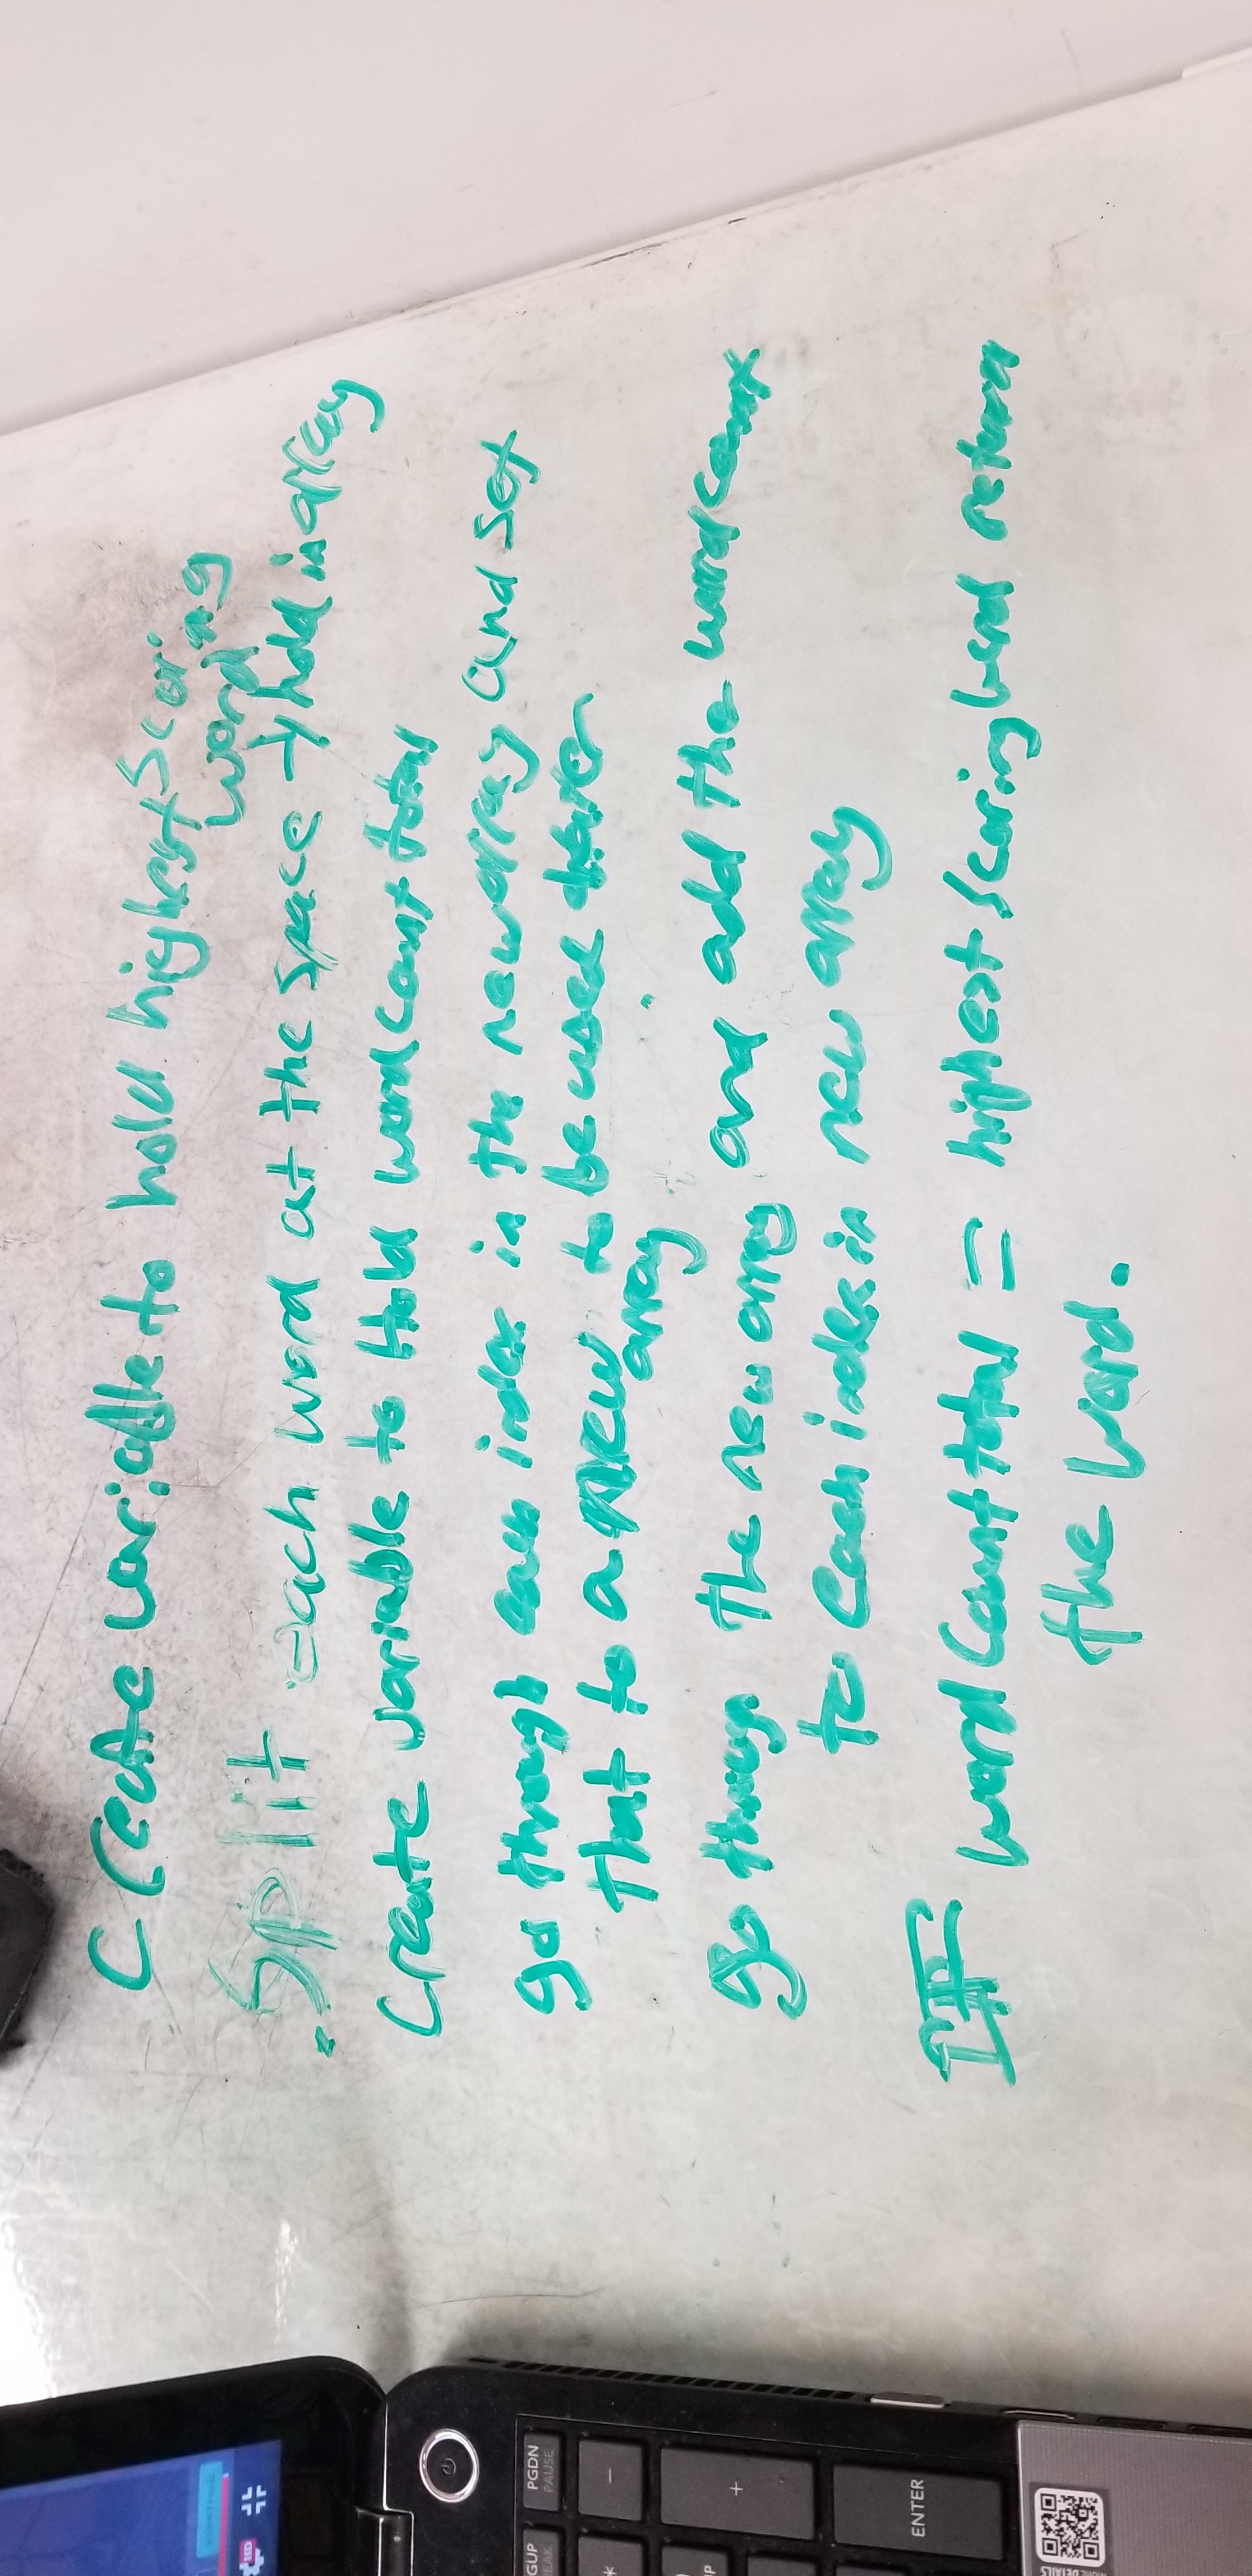 Create variable to hold highest scoring
word
. Split each word at the space → hold in array
Create variable to Hold word count total
go through each index in the new array and set
that to a new to be used later
array
go through the new array and add the word count
to each index in new array
IF word count total = highest scoring word return
the word.
PGDN
PAUSE
-
+
ENTER
*